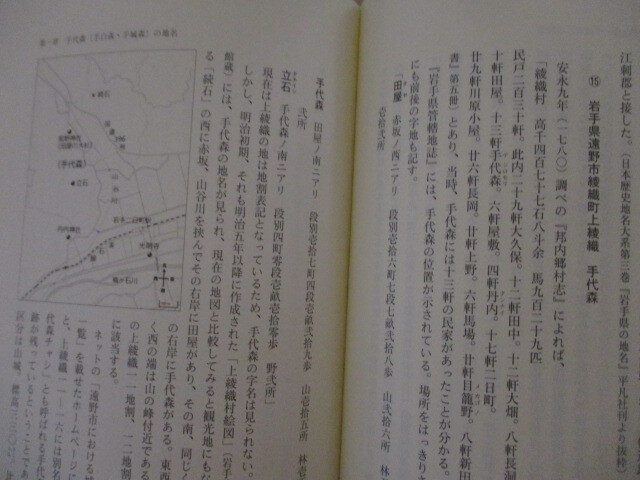 江刺郡と接した。(『日本歴史地名大系第三巻『岩手県の地名』平凡社刊より抜粋)
⑮ 岩手県遠野市綾織町上綾織 手代森
安永九年(一七八〇)調べの『邦内郷村志』によれば、
「綾織村 高千四百七十七石八斗余 馬九百二十九匹
民戸二百三十軒。此内二十九軒大久保。十二軒田中。十二軒大畑。八軒長洞
十軒田屋。十三軒手代森。六軒屋敷。四軒丹内。十七軒二日町。
廿九軒川原小屋。廿六軒長岡。廿軒上野。六軒馬場。廿軒日籠野。八軒新田
書』第五冊)とあり、当時、手代森には十三軒の民家があったことが分かる。
『岩手県管轄地誌』には、手代森の位置が示されている。場所をはっきり
にも前後の字地も記す。
「田屋 赤坂ノ西ニアリ 段別壱拾六町七段七畝弐拾八歩 山弐拾六所 林
壱拾弐所
手代森 田屋ノ南ニアリ 段別壱拾七町四段弐拾九歩 山壱拾五所 林壱
弐所
立石 手代森ノ南ニアリ 段別四町零段壱畝壱拾零歩 野弐所」
現在は上綾織の地は地割表記となっているため、手代森の字名は見られない。
しかし、明治初期、それも明治五年以降に作成された「上綾織村絵図」(岩手
館蔵)には、手代森の地名が見られ、現在の地図と比較してみると観光地にもな
る「続石」の西に赤坂、山谷川を挟んでその右岸に田屋があり、その南、同じく
の右岸に手代森がある。東西
く西の端は山の峰付近である
の上綾織一一地割、一二地割
に該当する。
ネットの「遠野市における城
一覧」を載せたホームページに
と、上綾織一一-六には別名
代森チャシ」とも呼ばれる手代
跡が残っているということであ
区分は山城、標高三三〇
第一章 手代森(手の森・手城森)の地名
続石
(手代森)
立石